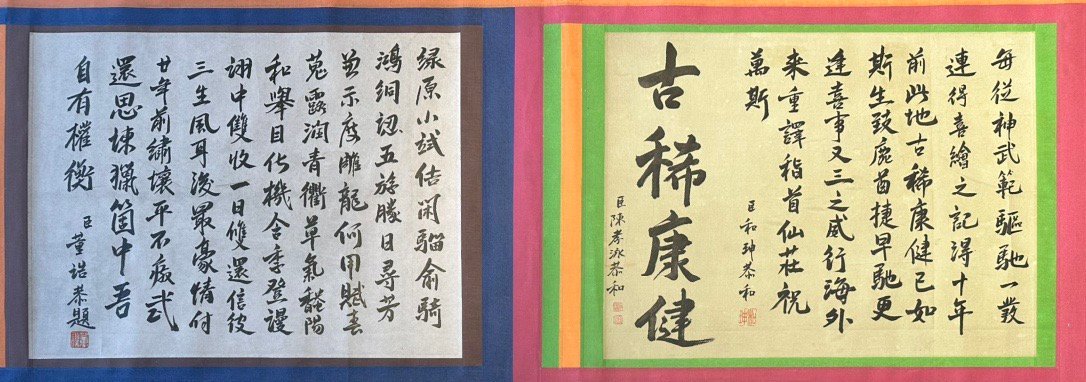 每從神武範驅馳一發
連得喜繪之記得十年
前此地古稀康健已如
斯生致鹿酋捷早馳更
逢喜事又三之威行海外
来重譯稽首仙莊祝
萬斯
臣和珅恭和
古稀康健
臣陳孝泳恭和
綠原小試佶閑騮俞騎
鴻絧認五斿勝日尋芳
並示度雕龍何用賦春
蒐露润青衢草氣陽
和舉目化機含季登谩
詡中雙收一日雙還信彼
三生風耳後最豪情付
廿年前繡壤平不弍
還思揀獵箇中吾
自有權衡
臣董誥恭題